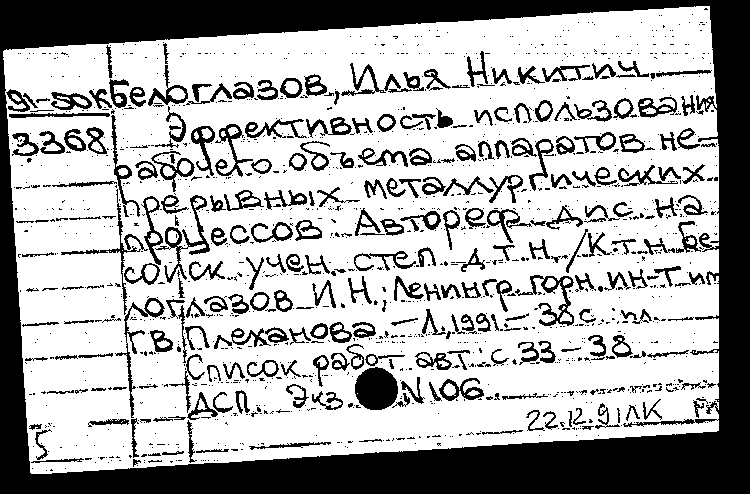 91-док Белоглазов, Илья Никитич
3368 Эффективность использования
рабочего объема аппаратов не-
прерывных металлургических
процессов: Автореф. дис. на
соиск. учен. степ. д.т.н. /К.т.н. Бе-
логлазов И.Н.; Ленингр. горн. ин-т им.
Г.В. Плеханова. – Л., 1991. – 38 с.: ил.
Список работ авт.: с. 33 – 38
ДСП. Экз. N 106
22.12.91 ЛК
5